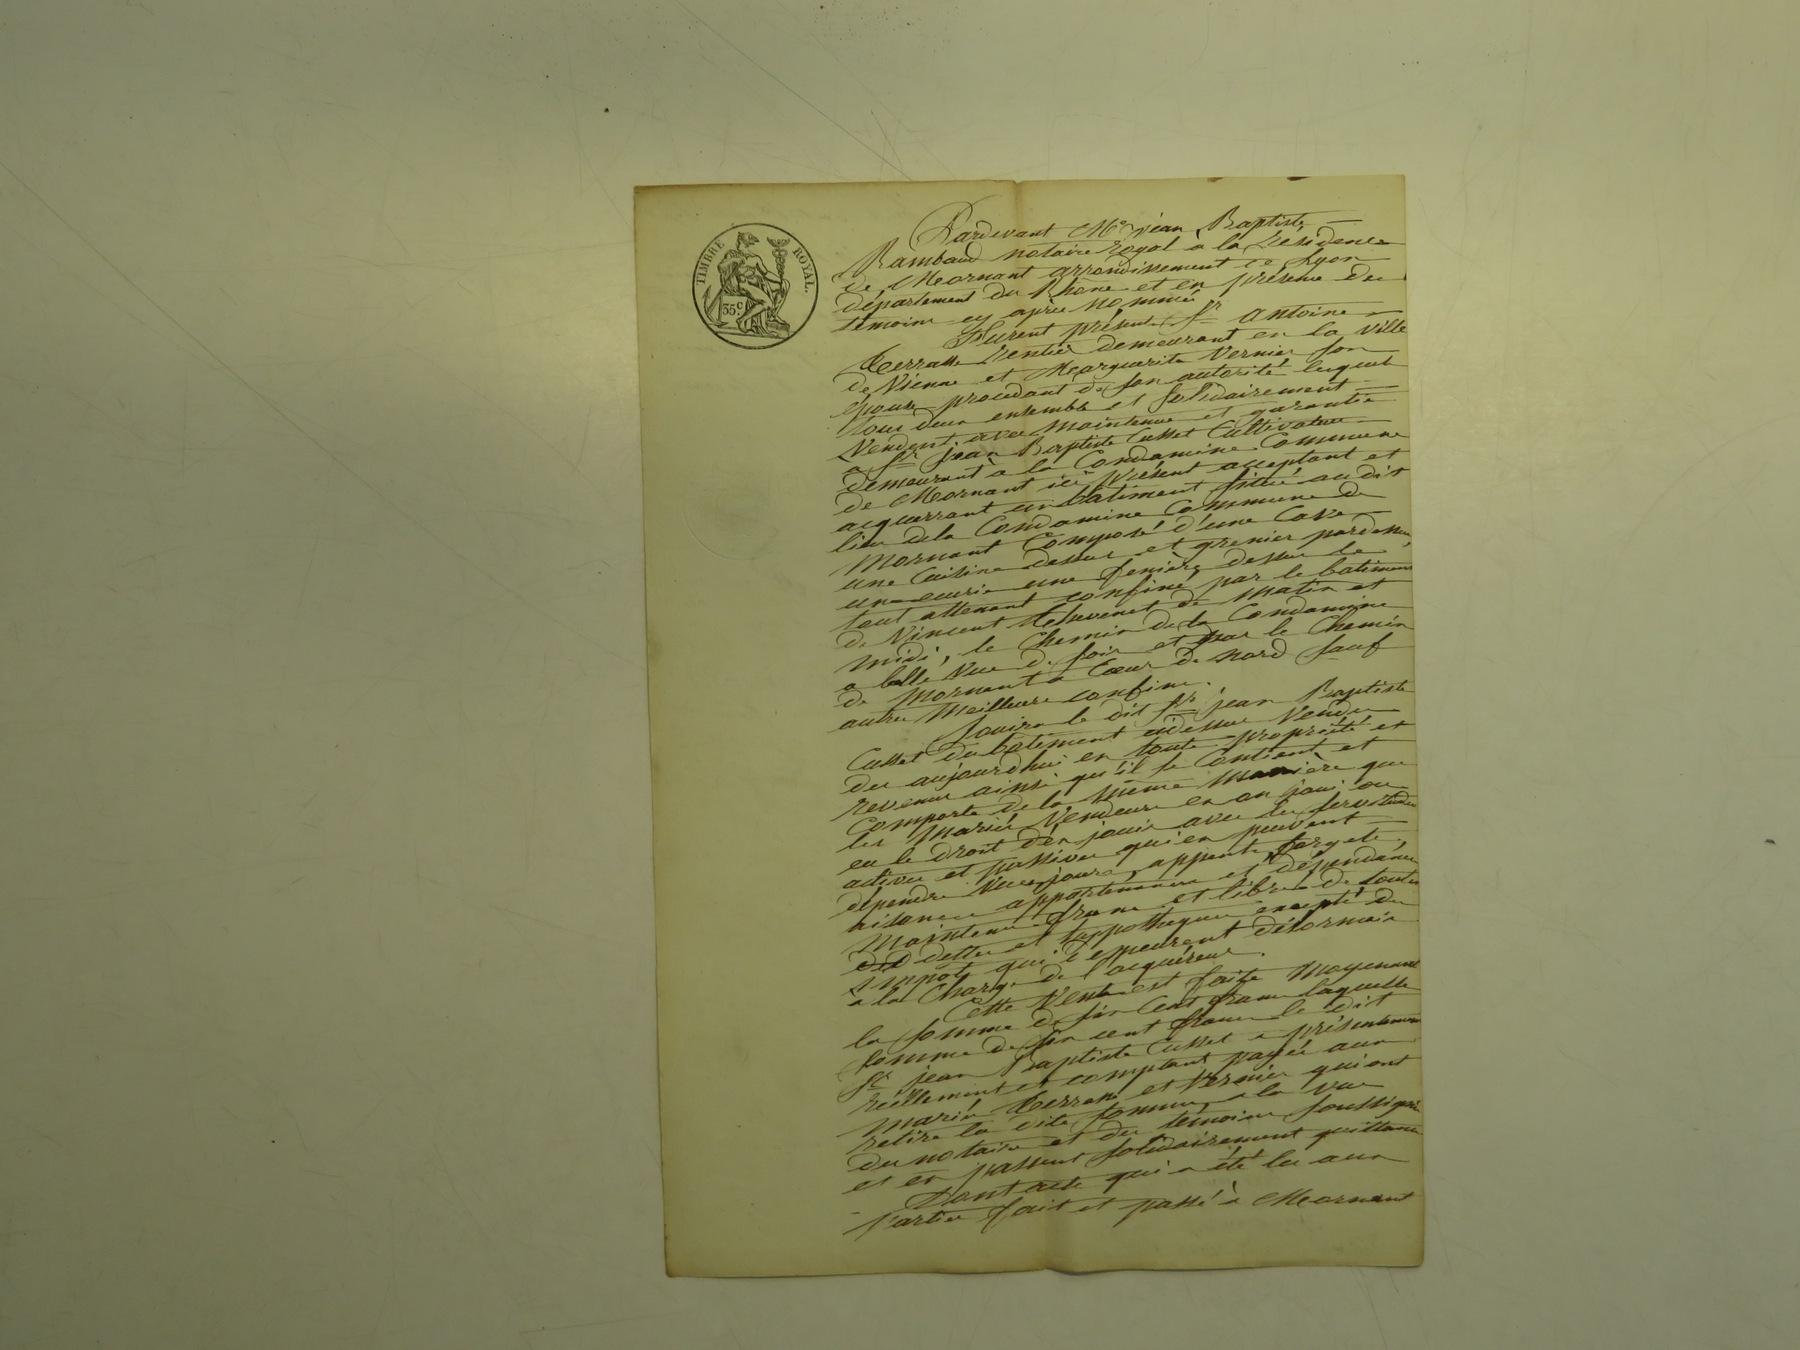 TIMBRE ROYAL.
35c
Pardevant Me jéan Baptiste
Rambaud notaire Royal a la Résidence
de Mornant arrondissement de Lyon
département du Rhone et en présence des
témoins cy après nommés
Furent présents Sr antoine
Terrasse Rentier demeurant en la ville
de Vienne et Marguerite Vernier son
épouse procedant de son autorité lesquels
tous deux ensemble et solidairement
Vendent avec maintenue et garantie
a Sr jean Baptiste Cusset Cultivateur
demeurant a la Condamine Commune
de Mornant ici présent acceptant et
acquerrant un batiment situé au dit
lieu de la Condamine Commune de
Mornant Composé d'une Cave
une Cuisine dessus et grenier pardessus,
une ecurie une feniére dessus le
tout attenant confiné par le batiment
de Vincent de matin et
midi, le Chemin de la Condamine
a belle Vue de soir et par le Chemin
de Mornant a Cœur de nord sauf
autres Meilleurs confins.
Jouira le dit Sr jean Baptiste
Cusset du batiment cidessus Vendu
des aujourdhui en toute propriété et
revenus ainsi qu'il se Contient et
Comporte de la même manière que
les mariés Vendeurs en on joui ou
eu le droit d'en jouir avec les servitudes
actives et passives qui en peuvent
dépendre Vues, jours, appents, forgets,
aisances appartenances et dépendances
Maintenu franc et libre de toutes
dettes et hyppotheques excepté des
impôts qui demeurent désormais
a la Charge de l'acquéreur.
Cette Vente est faite Moyennant
la somme de six Cent francs laquelle
somme de six cent francs le dit
Sr jean Baptiste Cusset a présentement
réellement et comptant payée aux
mariés Terrasse et Vernier qui ont
retiré la dite somme, a la vue
du notaire et des témoins soussignés
et en passent solidairement quittance
Dont acte qui a été lu aux
parties fait et passé à Mornant